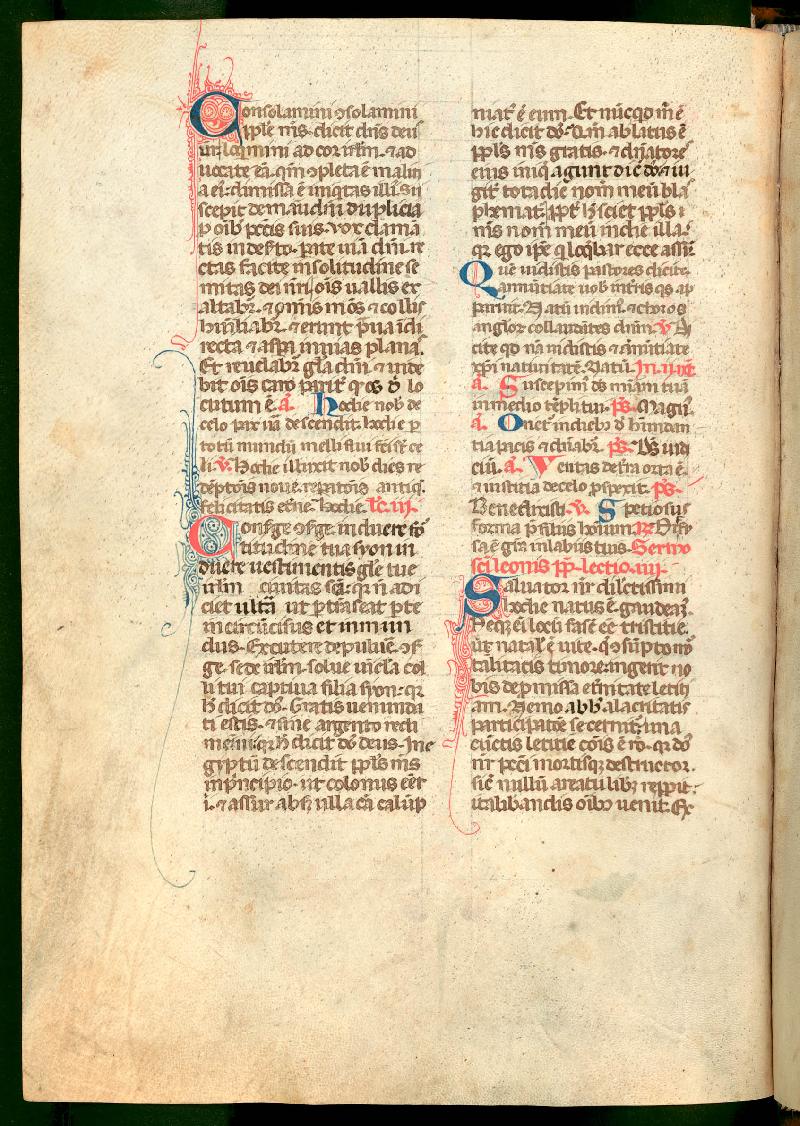 Consolamini ɔsolamini
pple m̅s. dicit dn̅s deus
vr̅. loquimini ad cor irl̅m. ⁊ ad
uocate ea̅. qm̅ ɔpleta e̅ malit̅
a ei᷒: dimissa e̅ iniqitas illi᷒. su
scepit de manu dn̅i duplicia
p oib᷒ pcc̅is suis. vox clama̅
tis in deserto. pate uia̅ dn̅i. re
ctas facite in solitudine se
mitas dei nr̅i. ois uallis ex
altabr̅. ⁊ om̅is mo̅s ⁊ collis
hu̅iliabr̅. ⁊ erunt p̅ua i̅ di
recta ⁊ asp̅a in uias planas.
Et reuelabr̅ gl̅a dn̅i. ⁊ uide
bit ois caro parit̅ q os d̅ lo
cutum e̅. a̅. Hodie nob̅ de
celo pax u̅a descendit. hodie p
totu̅ mundu̅ melliflui fc̅i st̅ ce
li. v̅. Hodie illuxit nob̅ dies re
de̅ptois noue. repatois antiq̅.
felicitatis et̅ne. hodie. lc̅. iij.
Consurge ɔsurge. induere for
titudine tua syon in
duere uestimentis gl̅e tue
irl̅m ciuitas sc̅i: qr̅ n̅ adi
ciet ultra̅ ut p̅transeat p te
in circu̅cisus et inmun
dus. Excutere de puluere. ɔsur
ge. sede irl̅m. solue uincl̅a col
li tui captiua filia syon: qr̅
h̅ dicit do̅s. Gratis uenunda
ti estis. ⁊ sine argento redi
memini. qr̅ h̅ dicit do̅s deus. In e
gyptu̅ descendit ppl̅s m̅s
in principio. ut colonus e̅et
i. ⁊ assur absq̅ ulla ca̅ calu̅p
niat᷒ e̅ eum. Et nu̅c qd m̅ e̅
hic dicit do̅s. Qm̅ ablatus e̅
ppl̅s m̅s gratis. ⁊ dn̅atores
eius iniq̅ agunt dic̅ do̅s ⁊ iu
git̅ tota die nom̅ meu̅ bla
phemat᷒. ppt̅ h̅ sciet ppl̅s
m̅s nom̅ meu̅ in die illa.
qr̅ ego ip̅e q loq̅bar ecce assu̅
Que̅ uidistis pastores dicite.
annu̅tiate uob̅ in t̅ris q̅s ap
paruit. Natu̅ uidim᷒. ⁊ choros
anglor̅ collaudantes dnm̅. v̅. Di
cite qd na̅ uidistis ⁊ annu̅tiate
xp̅i natiuitate̅. Natu̅. In ij. nt̅
a̅. Suscepim᷒ ds̅ mia̅m tua̅
in medio te̅pli tui. ps̅. Magn᷒.
a̅. Oriet᷒ in dieb᷒ d̅ habundan
tia pacis ⁊ dn̅abr̅. ps̅. Ds̅ iudi
ciu̅. a̅. Veritas de t̅ra orta e̅.
⁊ iustitia de celo ꝓspexit. ps̅.
Benedixisti. v̅. Speciosus
forma p̅ filiis hominu̅. R̅. Diffu
sa e̅ gr̅a in labiis tuis. Sermo
sc̅i leonis pp̅. lectio. iiij.
Saluator nr̅ dilectissimi
hodie natus e̅. gaudeam᷒.
Neq̅ eni̅ locu̅ fas e̅ e̅e tristitie.
ubi natal̅ e̅ uite. q ɔsu̅pto mor
talitatis timore: ingerit no
bis de p̅missa et̅nitate letiti
am. Nemo abb̅ alacritatis
participatoe̅ secernit᷒. una
cu̅ctis letitie co̅is e̅ ro̅. qr̅ do̅s
nr̅ pcc̅i mortisq̅ destructor.
sic̅ nullu̅ a reatu lib̅r̅ repp̅it.
ita lib̅andis oib᷒ uenit. Ex